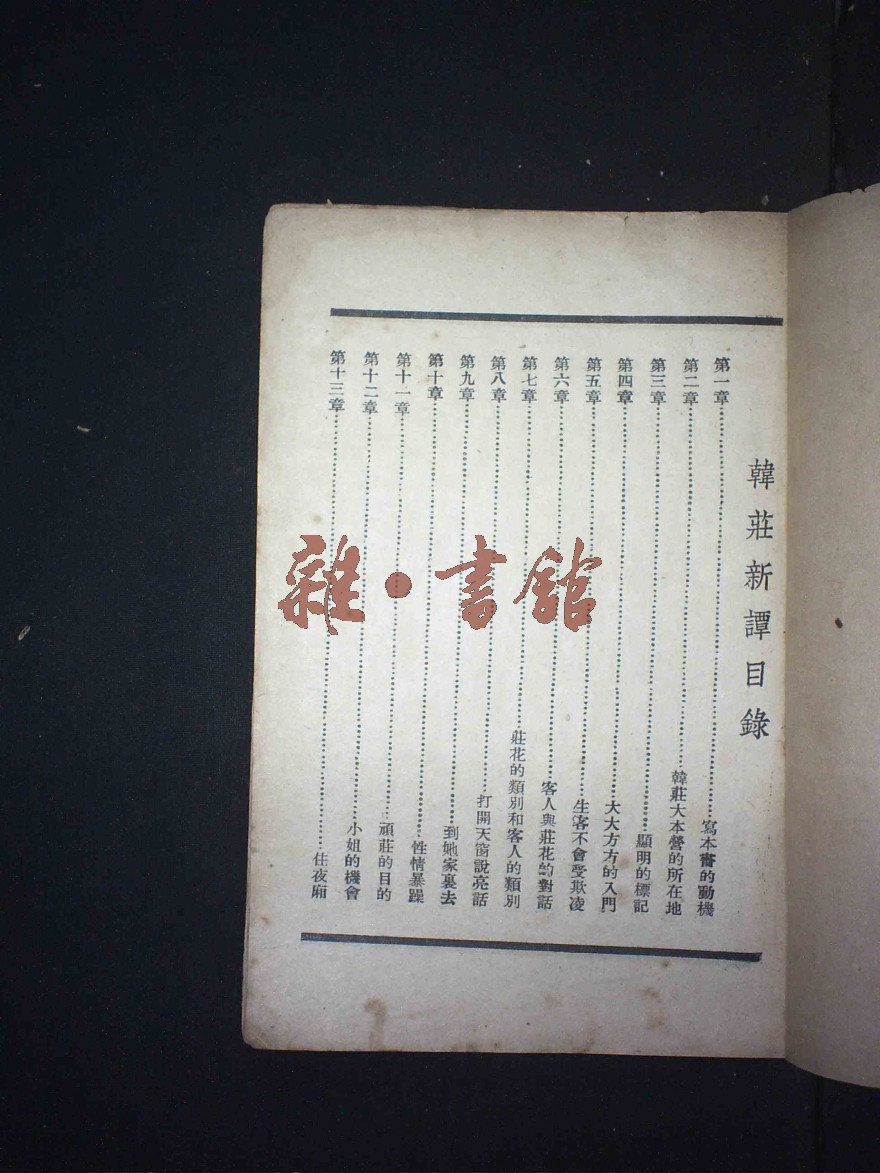 韓莊新譚目錄
第一章……寫本書的動機
第二章……韓莊大本營的所在地
第三章……顯明的標記
第四章……大大方方的入門
第五章……生客不會受欺凌
第六章……客人與莊花的對話
第七章……莊花的類別和客人的類別
第八章……打開天窗說亮話
第九章……到她家裏去
第十章……性情暴躁
第十一章……頑莊的目的
第十二章……小姐的機會
第十三章……住夜廂
雜·書館